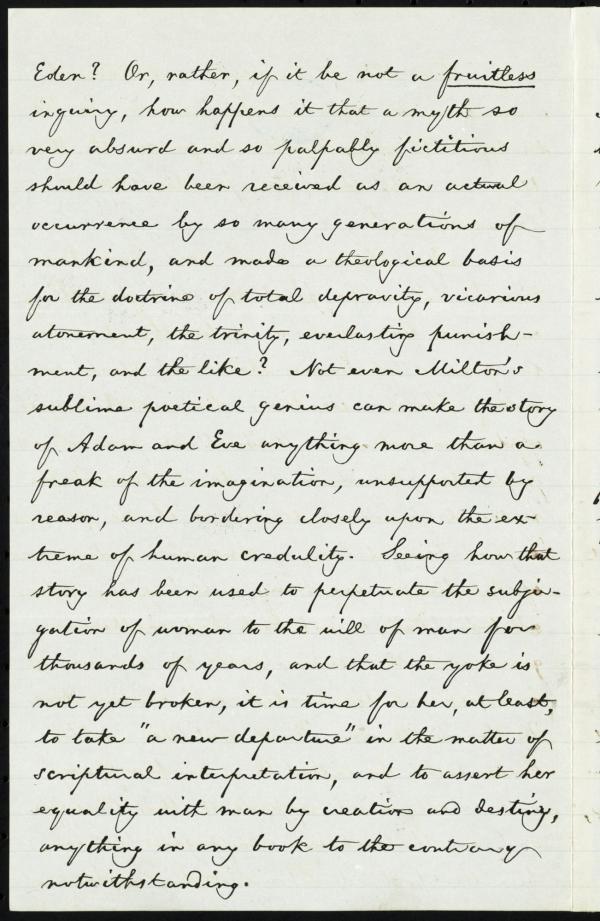 Eden? Or, rather, if it be not a fruitless
inquiry, how happens it that a myth so
very absurd and so palpably fictitious
should have been received as an actual
occurrence by so many generations of
mankind, and made a theological basis
for the doctrine of total depravity, vicarious
atonement, the trinity, everlasting punish-
ment, and the like? Not even Milton's
sublime poetical genius can make the story
of Adam and Eve anything more than a
freak of the imagination, unsupported by
reason, and bordering closely upon the ex-
treme of human credulity. Seeing how that
story has been used to perpetuate the subju-
gation of woman to the will of man for
thousands of years, and that the yoke is
not yet broken, it is time for her, at least,
to take "a new departure" in the matter of
scriptural interpretation, and to assert her
equality with man by creation and destiny,
anything in any book to the contrary
notwithstanding.